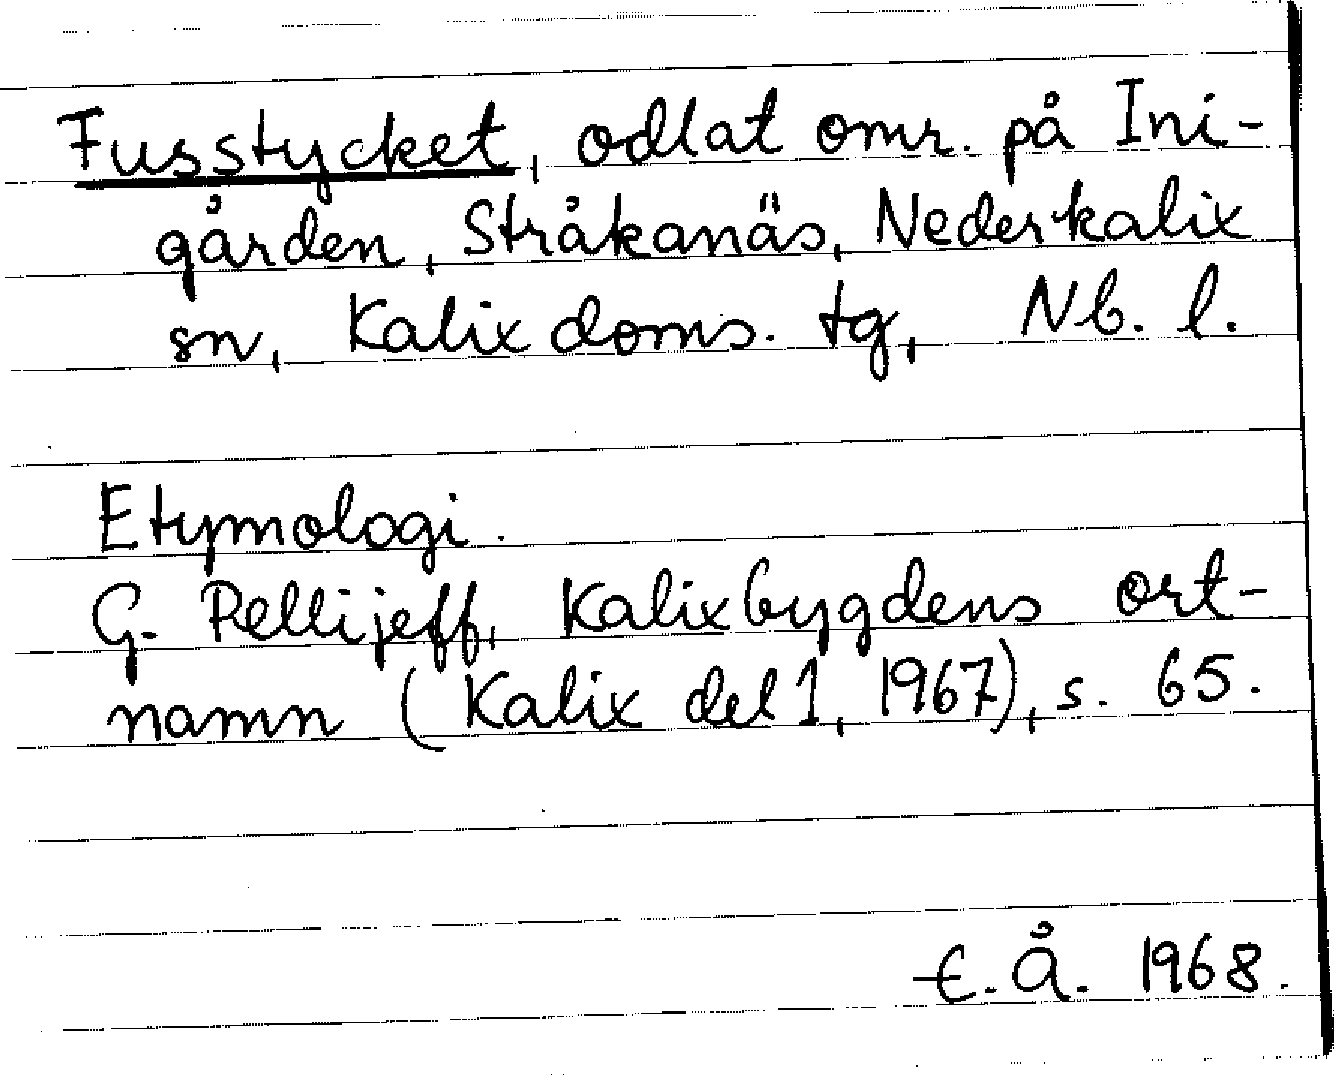 Fusstycket, odlat omr. på Ini-
gården, Stråkanäs, Nederkalix
sn, Kalix doms. tg, Nb. l.
Etymologi.
G. Pellijeff, Kalixbygdens ort-
namn (Kalix del 1, 1967), s. 65.
E. Å. 1968.